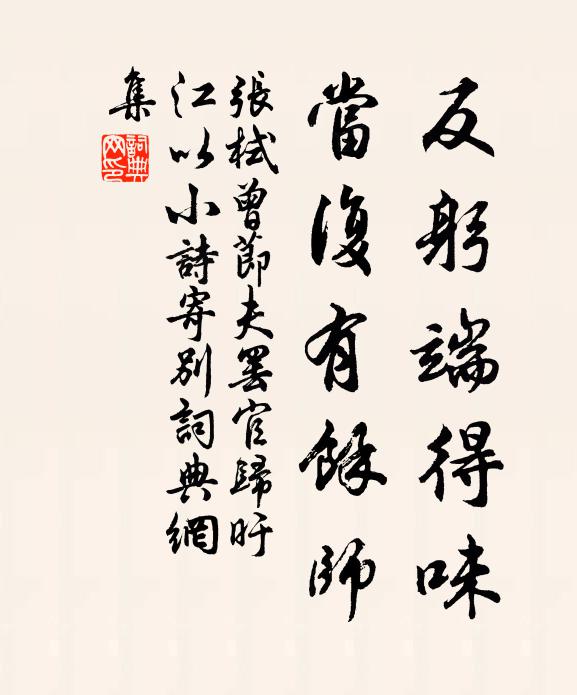 反躬端得味
當復有餘師
張栻曾節夫罷官歸盱
江以小詩寄別詞典網
集
詞典網印